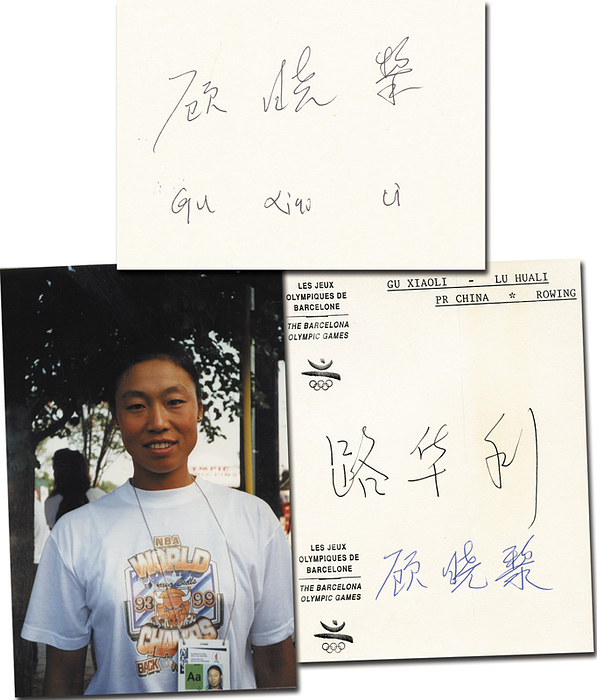 顾 晓 黎
Gu Xiao Li
LES JEUX
OLYMPIQUES DE
BARCELONE
THE BARCELONA
OLYMPIC GAMES
GU XIAOLI - LU HUALI
PR CHINA * ROWING
路 华 利
LES JEUX
OLYMPIQUES DE
BARCELONE
THE BARCELONA
OLYMPIC GAMES
顾 晓 黎
NBA
WORLD
93 99
CHAMPS
BACK
Aa